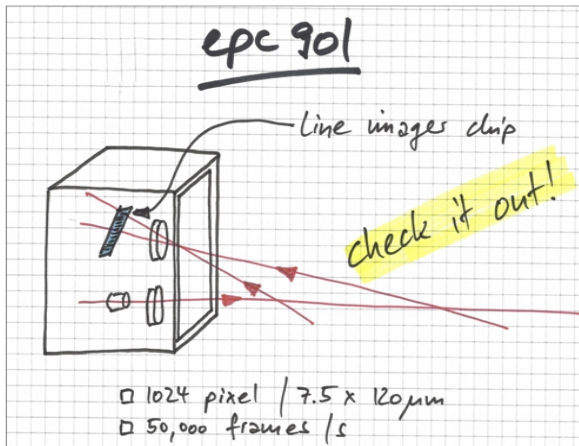 epc 901
Line imager chip
check it out!
□ 1024 pixel / 7.5 x 120µm
□ 50,000 frames /s